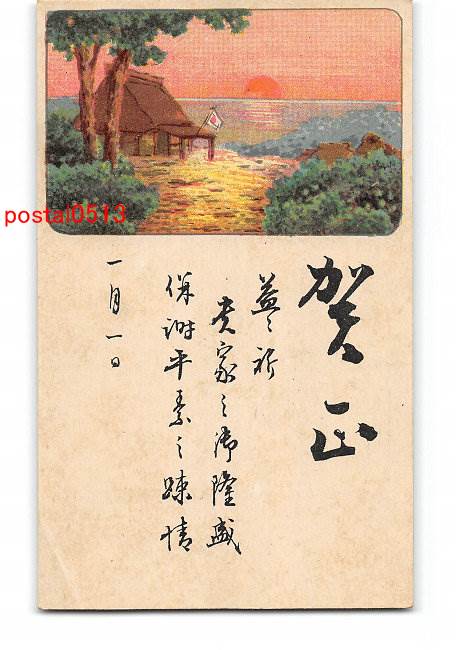 postal0513
賀正
益々祈
貴家之御隆盛
併謝平素之疎情
一月一日